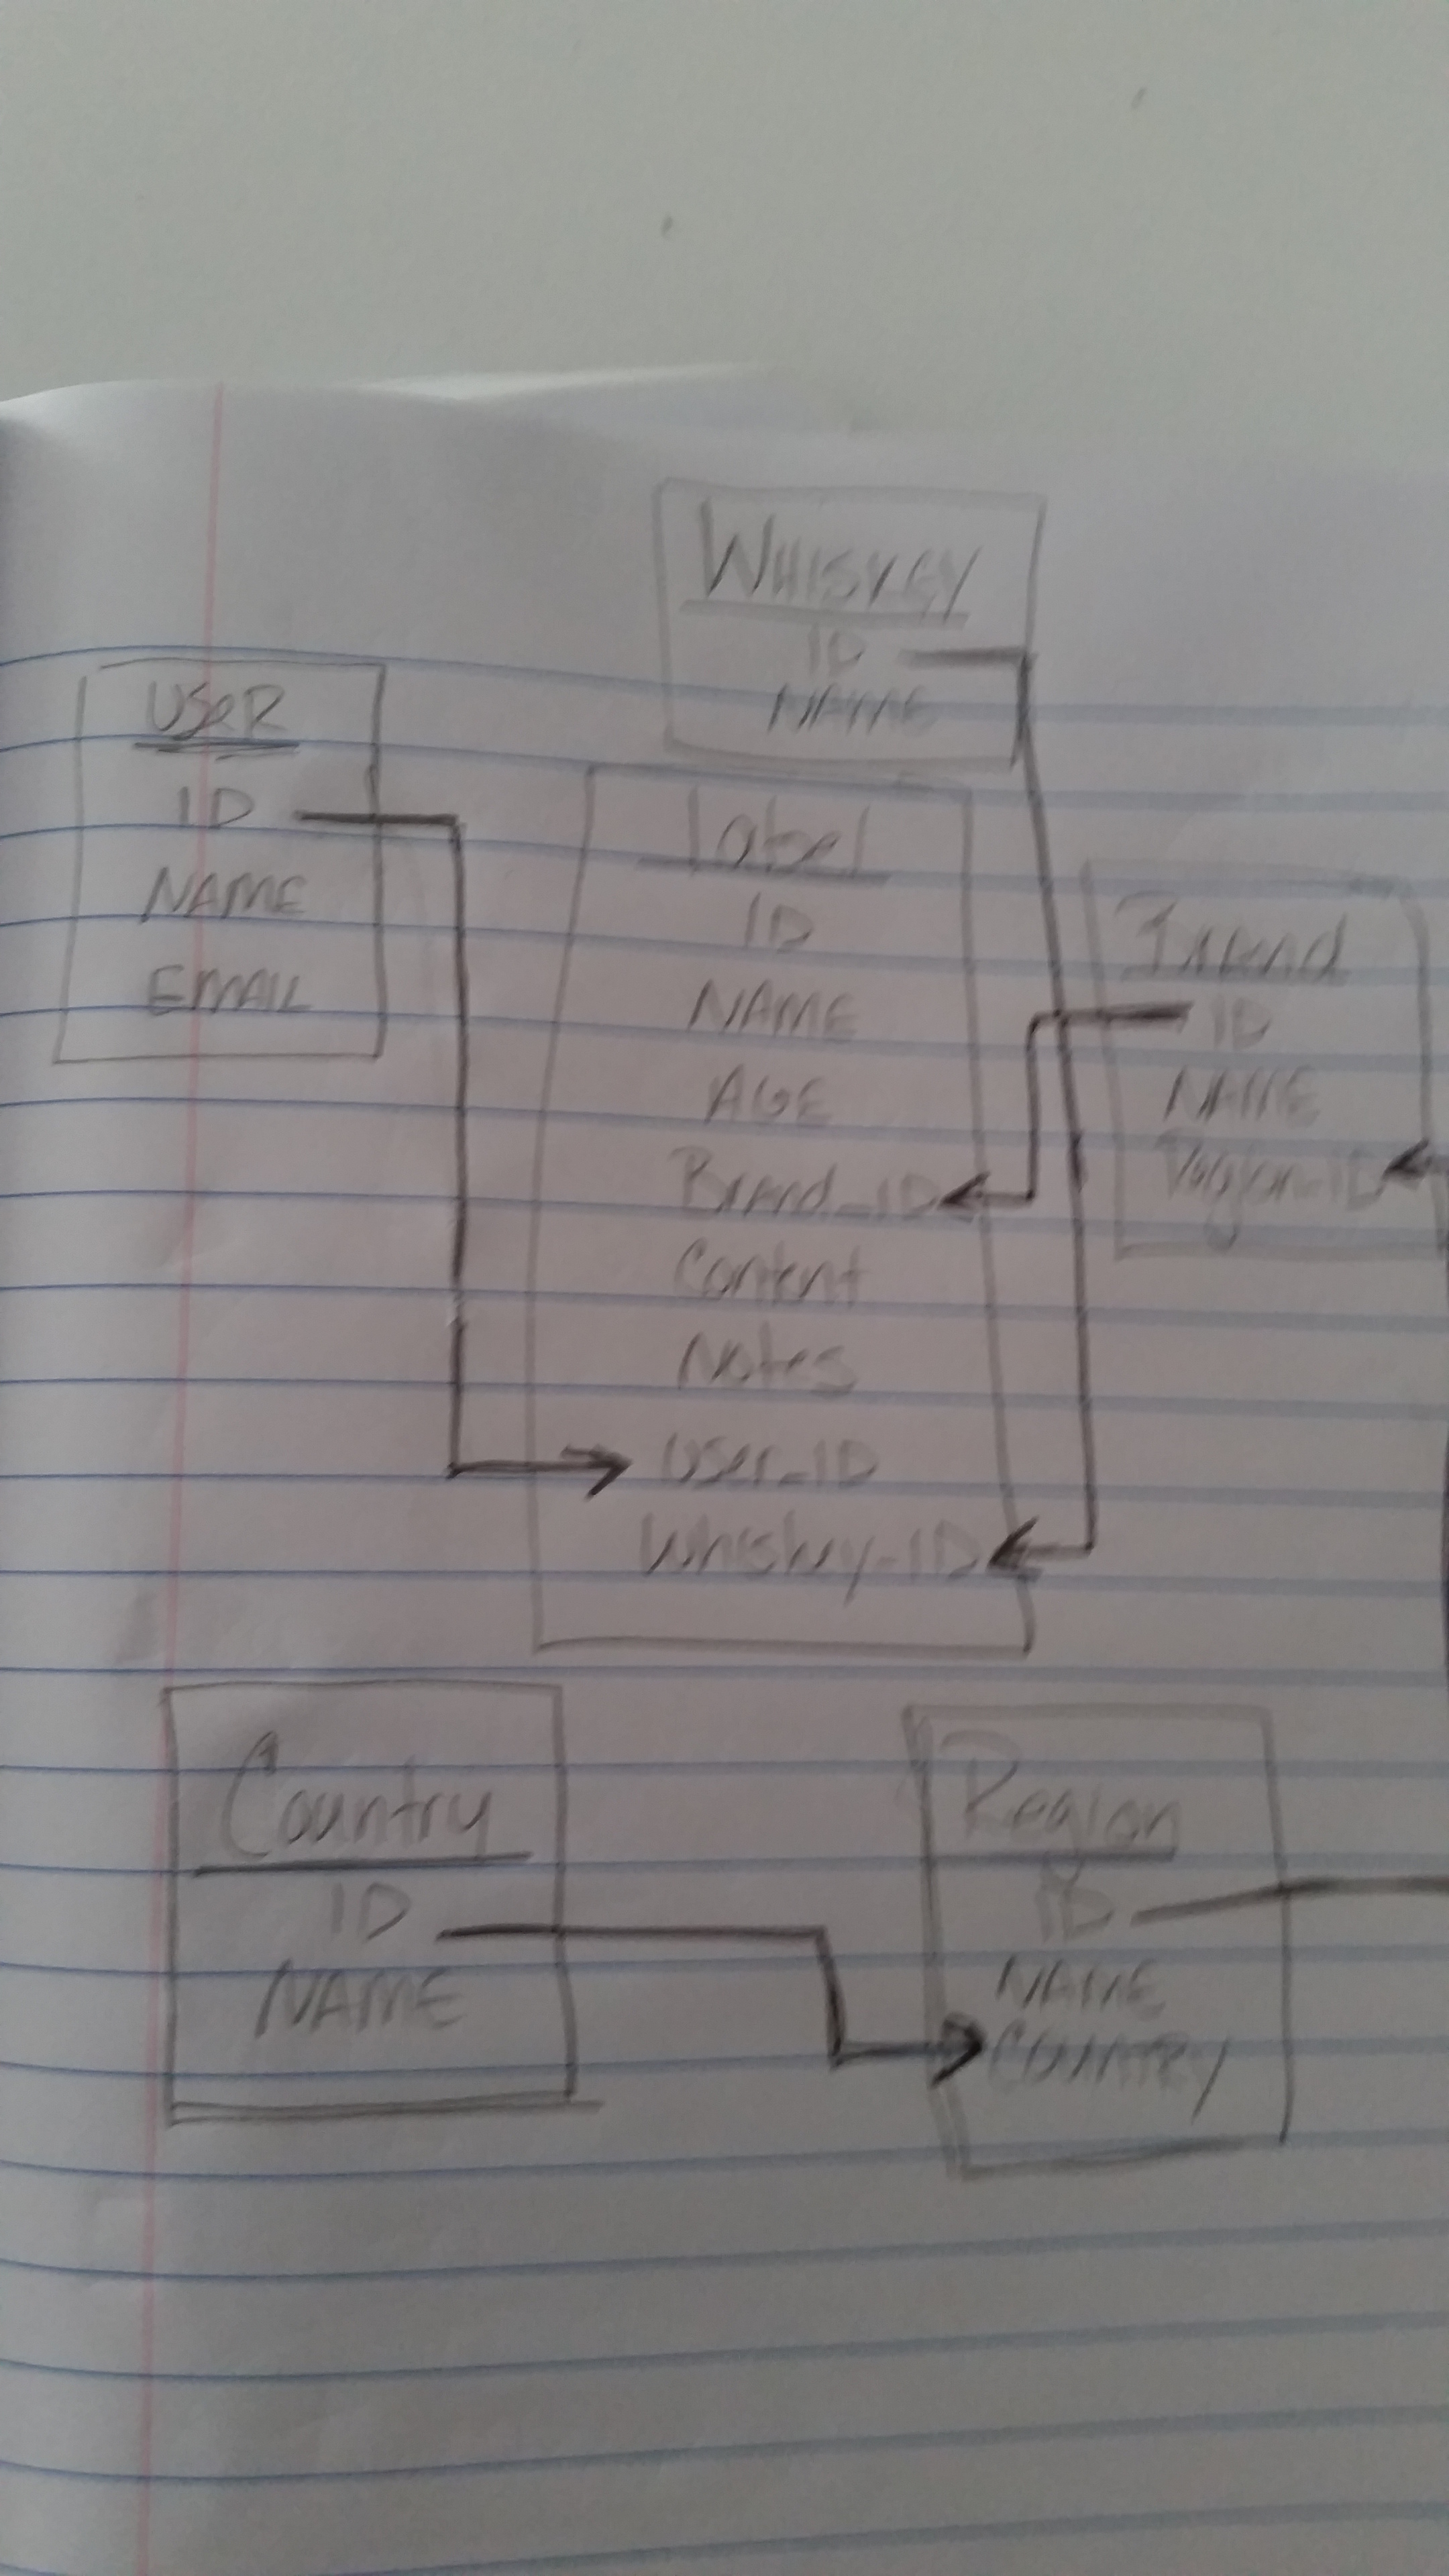 WHISKEY
ID
NAME
USER
ID
NAME
EMAIL
Label
ID
NAME
AGE
Brand_ID
Content
Notes
User_ID
Whiskey_ID
Brand
ID
NAME
Region_ID
Country
ID
NAME
Region
ID
NAME
COUNTRY